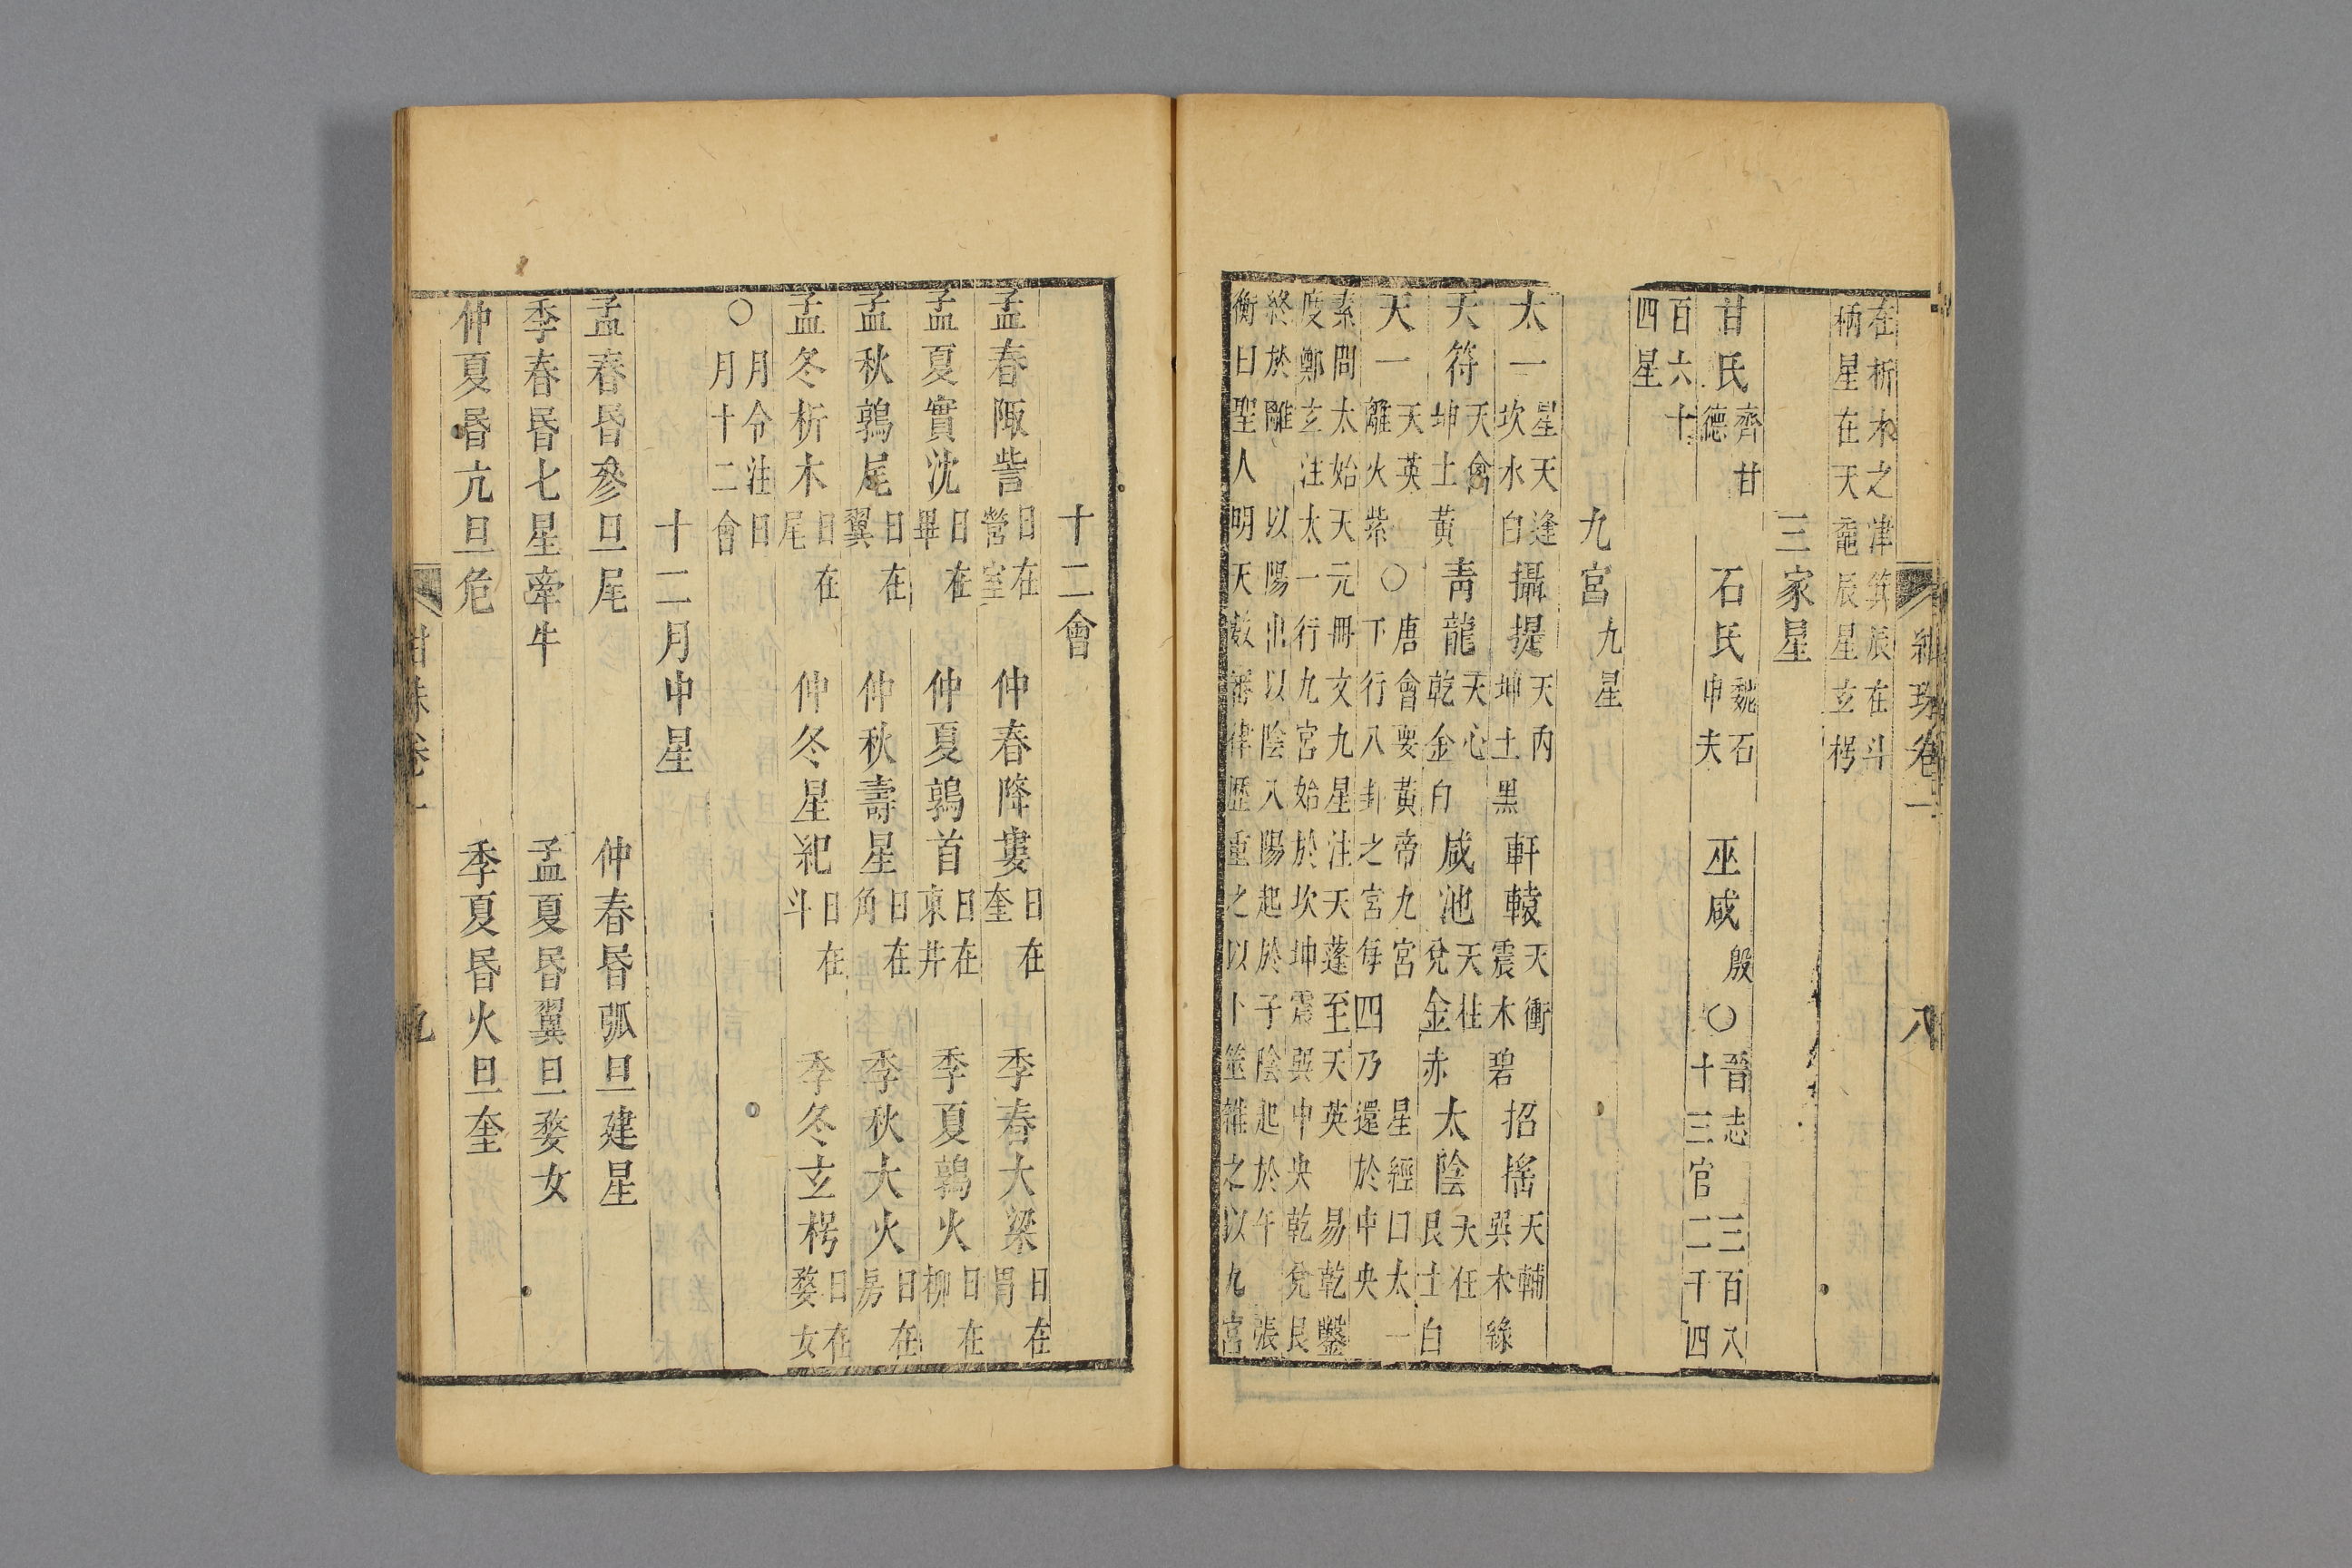 紺珠卷一 八
在析木之津箕辰在斗
柄星在天黿辰星玄枵
三家星
甘氏齊甘德 石氏魏石申夫 巫咸殷 〇晉志三百八十三官二千四
百六十四星
九宮九星
太一星天逢坎水白 攝提天內坤土黑 軒轅天衝震木碧 招搖天輔巽木綠
天符天禽坤土黃 青龍天心乾金白 咸池天柱兌金赤 太陰天任艮土白
天一天英離火紫 〇唐會要黃帝九宮星經曰太一下行八卦之宮每四乃還於中央
素問太始天元冊文九星注天蓬至天英易乾鑿
度鄭玄注太一行九宮始於坎坤震巽中央乾兌艮
終於離 以陽出以陰入陽起於子陰起於午 張
衡曰聖人明天數審律歷重之以卜筮雜之以九宮
十二會
孟春陬訾日在營室 仲春降婁日在奎 季春大梁日在胃
孟夏實沈日在畢 仲夏鶉首日在東井 季夏鶉火日在柳
孟秋鶉尾日在翼 仲秋壽星日在角 季秋大火日在房
孟冬析木日在尾 仲冬星紀日在斗 季冬玄枵日在婺女
〇月令注日月十二會
十二月中星
孟春昏參旦尾 仲春昏弧旦建星
季春昏七星旦牽牛 孟夏昏翼旦婺女
仲夏昏亢旦危 季夏昏火旦奎
紺珠卷一 九